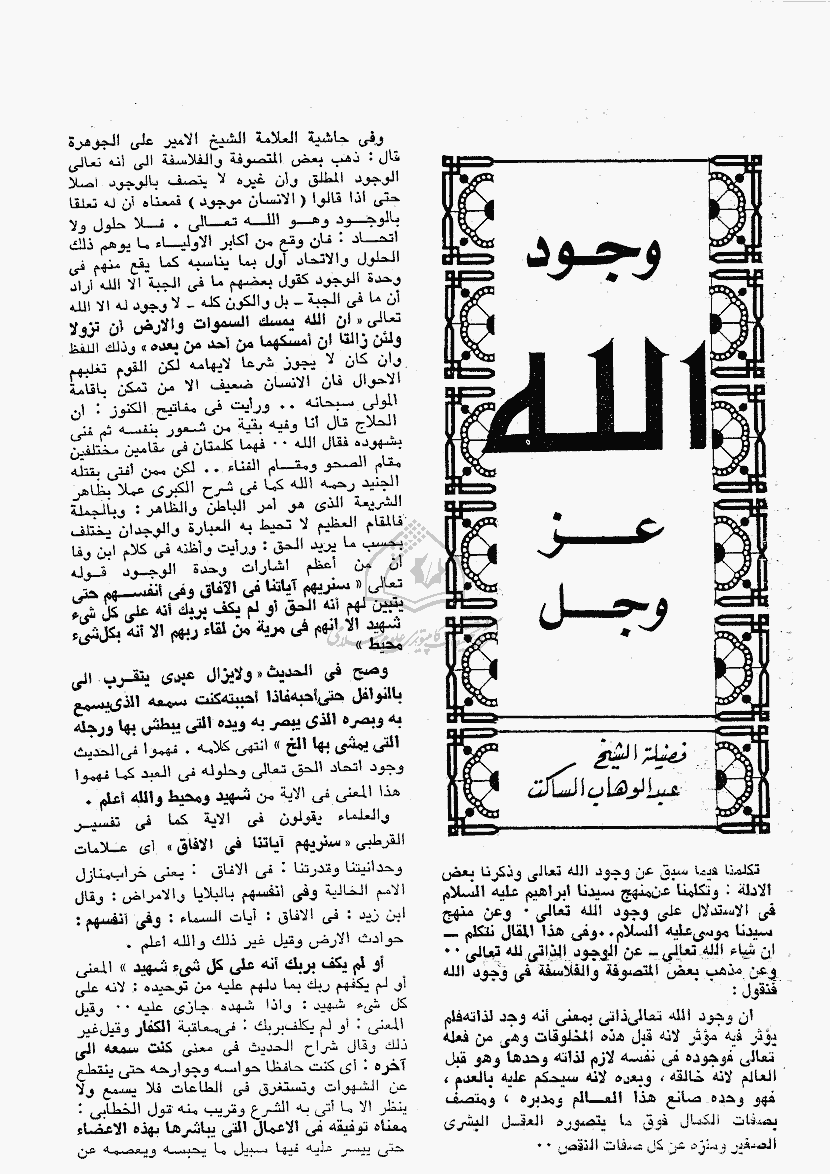 وجود
الله
عــز
وجــل
فضيلة الشيخ
عبد الوهاب الساكت
تكلمنا فيما سبق عن وجود الله تعالى وذكرنا بعض
الادلة : وتكلمنا عن منهج سيدنا ابراهيم عليه السلام
فى الاستدلال على وجود الله تعالى ٠ وعن منهج
سيدنا موسى عليه السلام ٠٠ وفى هذا المقال نتكلم ــ
ان شاء الله تعالى ــ عن الوجود الذاتى لله تعالى ٠٠
وعن مذهب بعض المتصوفة والفلاسفة فى وجود الله
فنقول :
ان وجود الله تعالى ذاتى بمعنى أنه وجد لذاته فلم
يؤثر فيه مؤثر لانه قبل هذه المخلوقات وهى من فعله
تعالى فوجوده فى نفسه لازم لذاته وحدها وهو قبل
العالم لانه خالقه ، وبعده لانه سيحكم عليه بالعدم ،
فهو وحده صانع هذا العــالم ومدبره ، ومتصف
بصفات الكمال فوق ما يتصوره العقــل البشرى
الصغير ومنزه عن كل صفات النقص ٠٠
وفى حاشية العلامة الشيخ الامير على الجوهرة
قال : ذهب بعض المتصوفة والفلاسفة الى أنه تعالى
الوجود المطلق وأن غيره لا يتصف بالوجود اصلا
حتى اذا قالوا ( الانسان موجود ) فمعناه أن له تعلقا
بالوجــود وهــو اللــه تعــالى . فــلا حلول ولا
اتحــاد : فان وقع من أكابر الاوليــاء ما يوهم ذلك
الحلول والاتحاد أول بما يناسبه كما يقع منهم فى
وحدة الوجود كقول بعضهم ما فى الجبة الا الله أراد
أن ما فى الجبة ــ بل والكون كله ــ لا وجود له الا الله
تعالى « ان الله يمسك السموات والارض أن تزولا
ولئن زالتا ان أمسكهما من أحد من بعده » وذلك اللفظ
وان كان لا يجوز شرعا لايهامه لكن القوم تغلبهم
الاحوال فان الانسان ضعيف الا من تمكن باقامة
المولى سبحانه ٠٠ ورأيت فى مفاتيح الكنوز : ان
الحلاج قال أنا وفيه بقية من شعور بنفسه ثم فنى
بشهوده فقال الله ٠٠ فهما كلمتان فى مقامين مختلفين
مقام الصحو ومقــام الفناء ٠٠ لكن ممن أفتى بقتله
الجنيد رحمه الله كما فى شرح الكبرى عملا بظاهر
الشريعة الذى هو أمر الباطن والظاهر : وبالجملة
فالمقام العظيم لا تحيط به العبارة والوجدان يختلف
بحسب ما يريد الحق : ورأيت وأظنه فى كلام ابن وفا
أن من أعظم اشارات وحدة الوجــود قــوله
تعالى « سنريهم آياتنا فى الآفاق وفى أنفســهم حتى
يتبين لهم أنه الحق أو لم يكف بربك أنه على كل شىء
شهيد الا انهم فى مرية من لقاء ربهم الا أنه بكل شىء
محيط »
وصح فى الحديث « ولايزال عبدى يتقرب الى
بالنوافل حتى أحبه فاذا أحببته كنت سمعه الذى يسمع
به وبصره الذى يبصر به ويده التى يبطش بها ورجله
التى يمشى بها الخ » انتهى كلامه . فهموا فى الحديث
وجود اتحاد الحق تعالى وحلوله فى العبد كما فهموا
هذا المعنى فى الاية من شهيد ومحيط والله أعلم .
والعلماء يقولون فى الاية كما فى تفسيــر
القرطبى « سنريهم آياتنا فى الافاق » أى عــلامات
وحدانيتنا وقدرتنا : فى الافاق : يعنى خراب منازل
الامم الخالية وفى أنفسهم بالبلايا والامراض : وقال
ابن زيد : فى الافاق : آيات السماء : وفى أنفسهم :
حوادث الارض وقيل غير ذلك والله أعلم .
أو لم يكف بربك أنه على كل شىء شهيد » المعنى
أو لم يكفهم ربك بما دلهم عليه من توحيده : لانه على
كل شىء شهيد : واذا شهده جازى عليه ٠٠ وقيل
المعنى : أو لم يكف بربك : فى معاقبة الكفار وقيل غير
ذلك وقال شراح الحديث فى معنى كنت سمعه الى
آخره : أى كنت حافظا حواسه وجوارحه حتى ينقطع
عن الشهوات وتستغرق فى الطاعات فلا يسمع ولا
ينظر الا ما أتى به الشرع وقريب منه قول الخطابى :
معناه توفيقه فى الاعمال التى يباشرها بهذه الاعضاء
حتى ييسر عليه فيها سبيل ما يحبسه ويعصمه عن